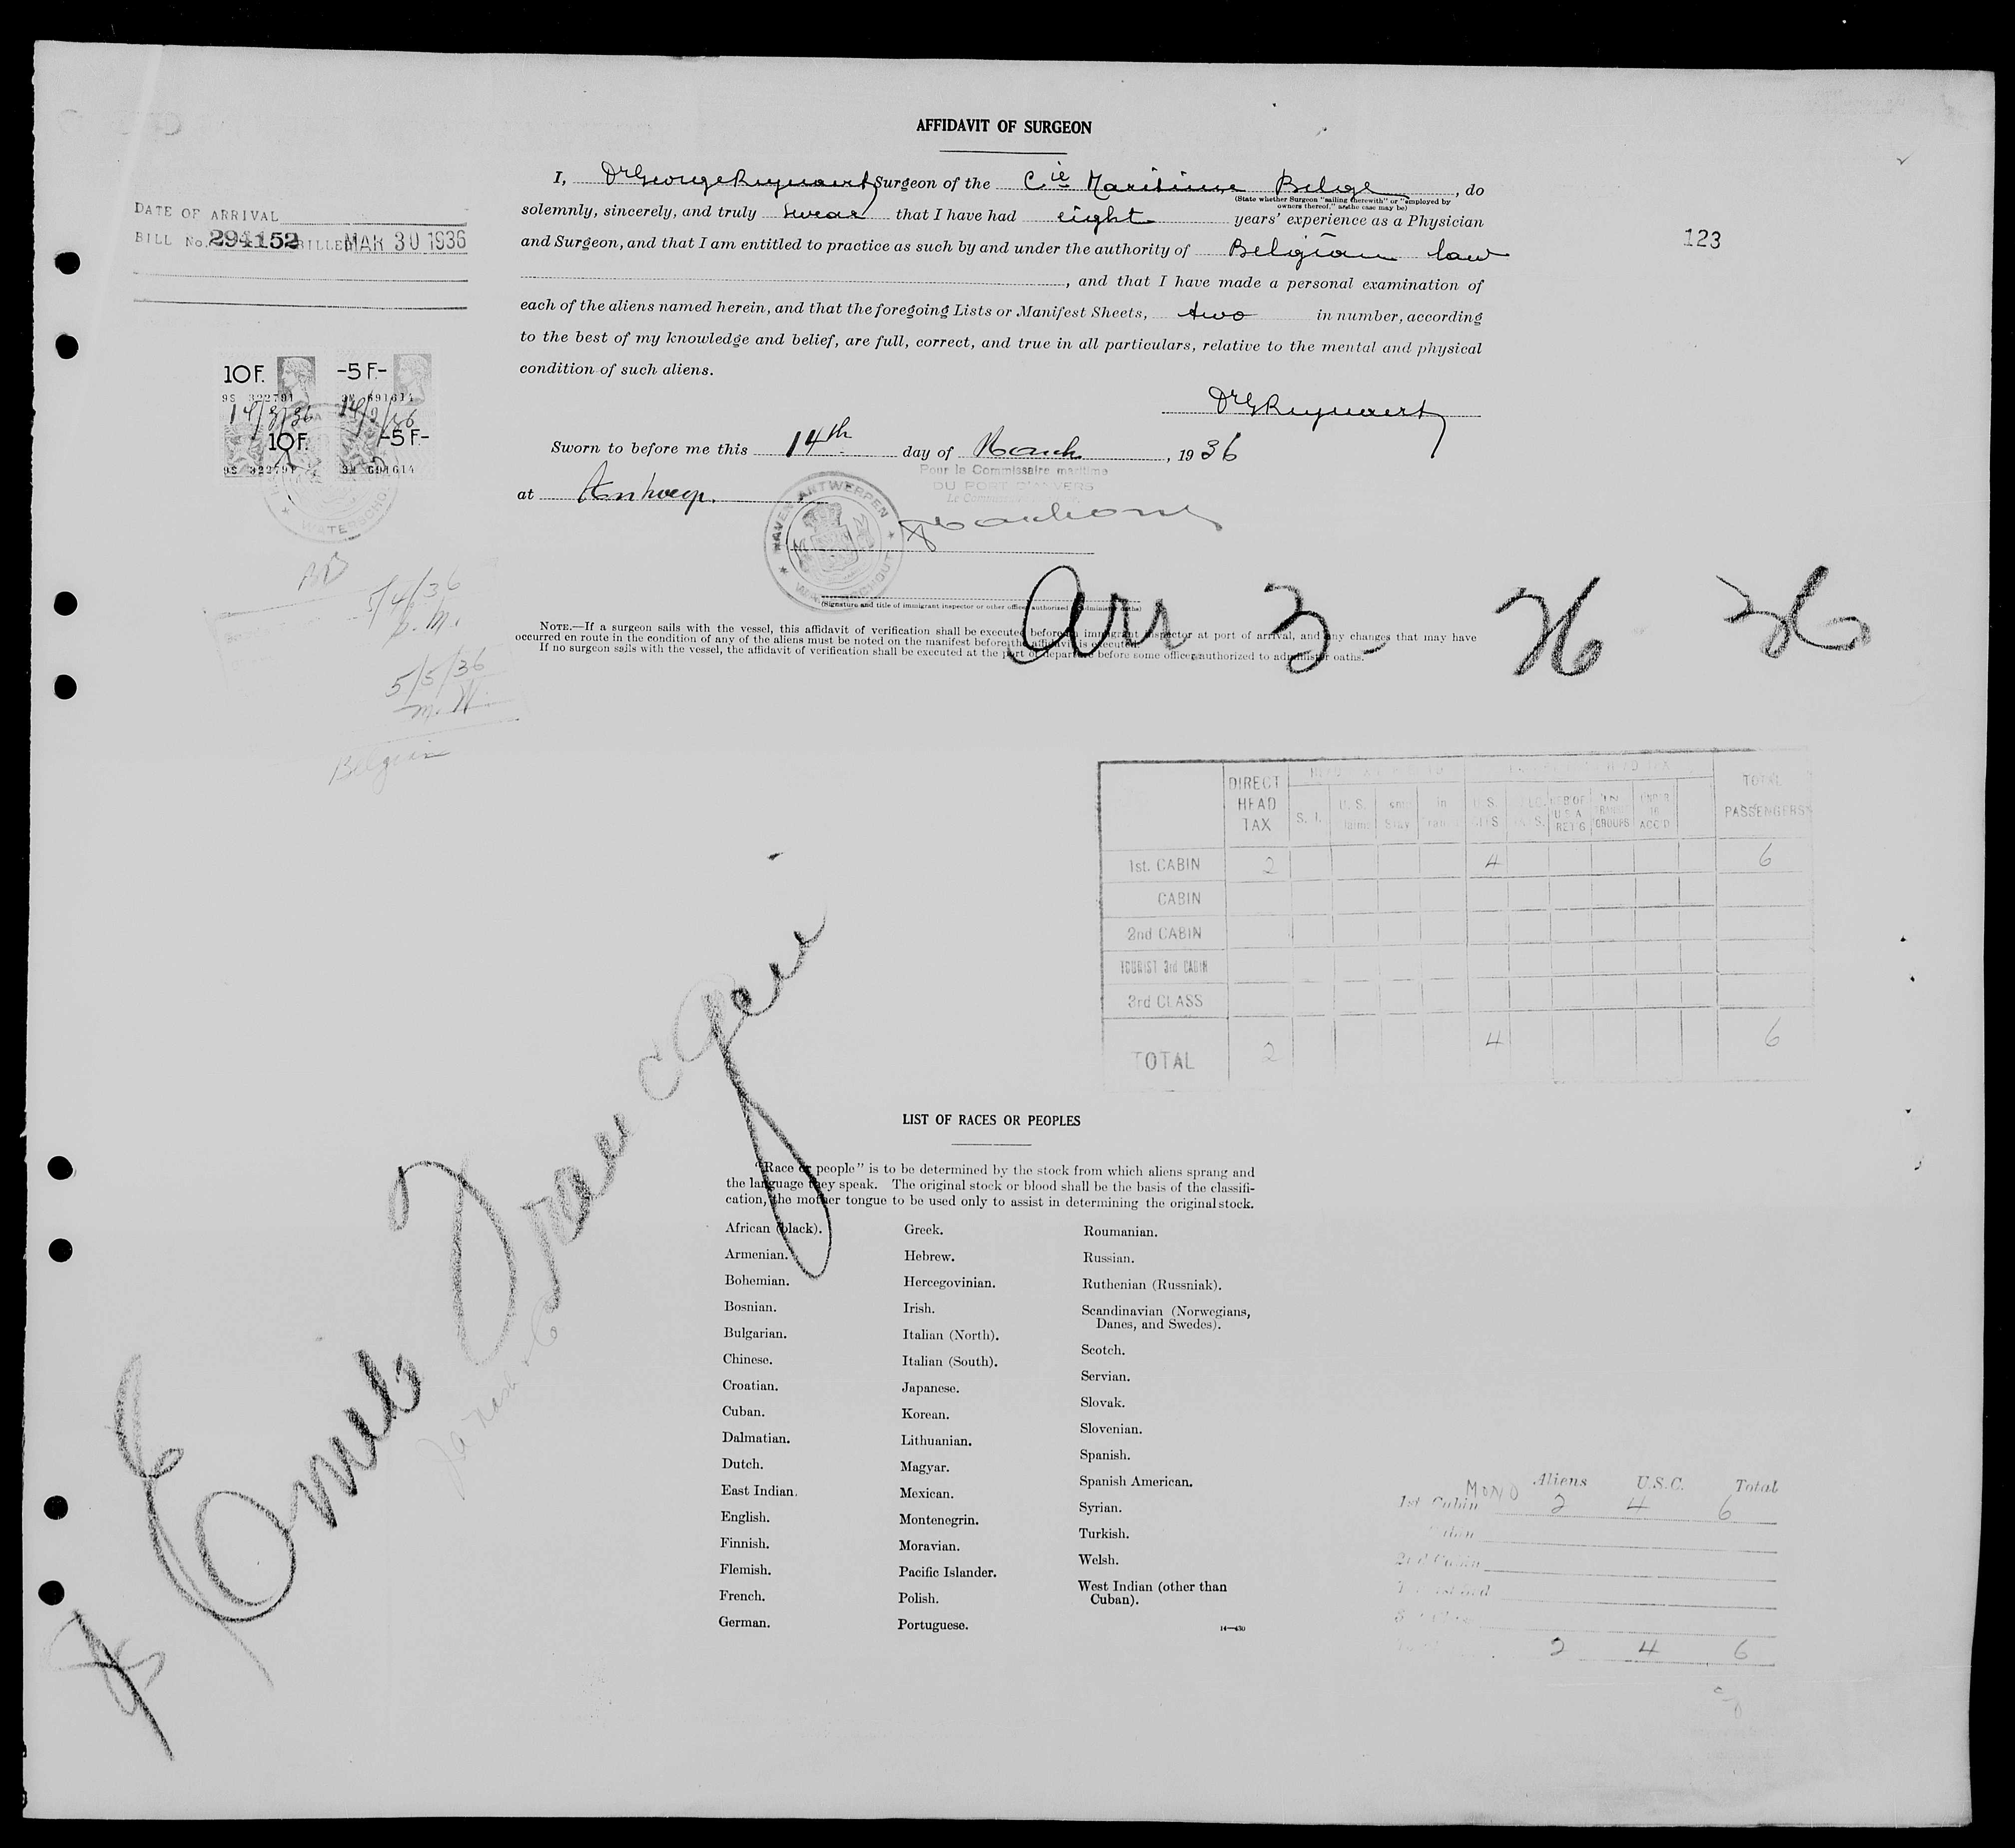 AFFIDAVIT OF SURGEON
I, Dr George Reynaert Surgeon of the Cie Maritime Belge, do
(State whether Surgeon "sailing therewith" or "employed by
owners thereof," as the case may be)
solemnly, sincerely, and truly swear that I have had eight years' experience as a Physician
and Surgeon, and that I am entitled to practice as such by and under the authority of Belgian law
, and that I have made a personal examination of
each of the aliens named herein, and that the foregoing Lists or Manifest Sheets, two in number, according
to the best of my knowledge and belief, are full, correct, and true in all particulars, relative to the mental and physical
condition of such aliens.
Dr G Reynaert
Sworn to before me this 14th day of March, 1936
Pour le Commissaire maritime
DU PORT D'ANVERS
at Antwerp.
HAVEN ANTWERPEN
WATERSCHOUT
(Signature and title of immigrant inspector or other officer authorized to administer oaths)
NOTE.—If a surgeon sails with the vessel, this affidavit of verification shall be executed before an immigrant inspector at port of arrival, and any changes that may have
occurred en route in the condition of any of the aliens must be noted on the manifest before the affidavit is executed.
If no surgeon sails with the vessel, the affidavit of verification shall be executed at the port of departure before some officer authorized to administer oaths.
Arr 3 - 26 36
123
DATE OF ARRIVAL
BILL No. 294152 BILLED MAR 30 1936
10F. -5F-
9S 322791 3M 691614
14/3/36 14/3/36
10F. -5F-
9S 322791 3M 691614
WATERSCHOUT
5/4/36
p.m.
5/5/36
Belgian
DIRECT HEAD TAX
S. I.
U. S.
U. S. CITS
RES OF U S A RET'G
IN TRANSIT GROUPS
UNDER 16 ACC'D
TOTAL PASSENGERS
1st. CABIN 2 4 6
CABIN
2nd CABIN
TOURIST 3rd CABIN
3rd CLASS
TOTAL 2 4 6
Emile Francqui
LIST OF RACES OR PEOPLES
"Race or people" is to be determined by the stock from which aliens sprang and
the language they speak. The original stock or blood shall be the basis of the classifi-
cation, the mother tongue to be used only to assist in determining the original stock.
African (black).
Armenian.
Bohemian.
Bosnian.
Bulgarian.
Chinese.
Croatian.
Cuban.
Dalmatian.
Dutch.
East Indian.
English.
Finnish.
Flemish.
French.
German.
Greek.
Hebrew.
Hercegovinian.
Irish.
Italian (North).
Italian (South).
Japanese.
Korean.
Lithuanian.
Magyar.
Mexican.
Montenegrin.
Moravian.
Pacific Islander.
Polish.
Portuguese.
Roumanian.
Russian.
Ruthenian (Russniak).
Scandinavian (Norwegians,
Danes, and Swedes).
Scotch.
Servian.
Slovak.
Slovenian.
Spanish.
Spanish American.
Syrian.
Turkish.
Welsh.
West Indian (other than
Cuban).
14—430
Aliens U.S.C. Total
1st Cabin MONO 2 4 6
2nd Cabin
2 4 6